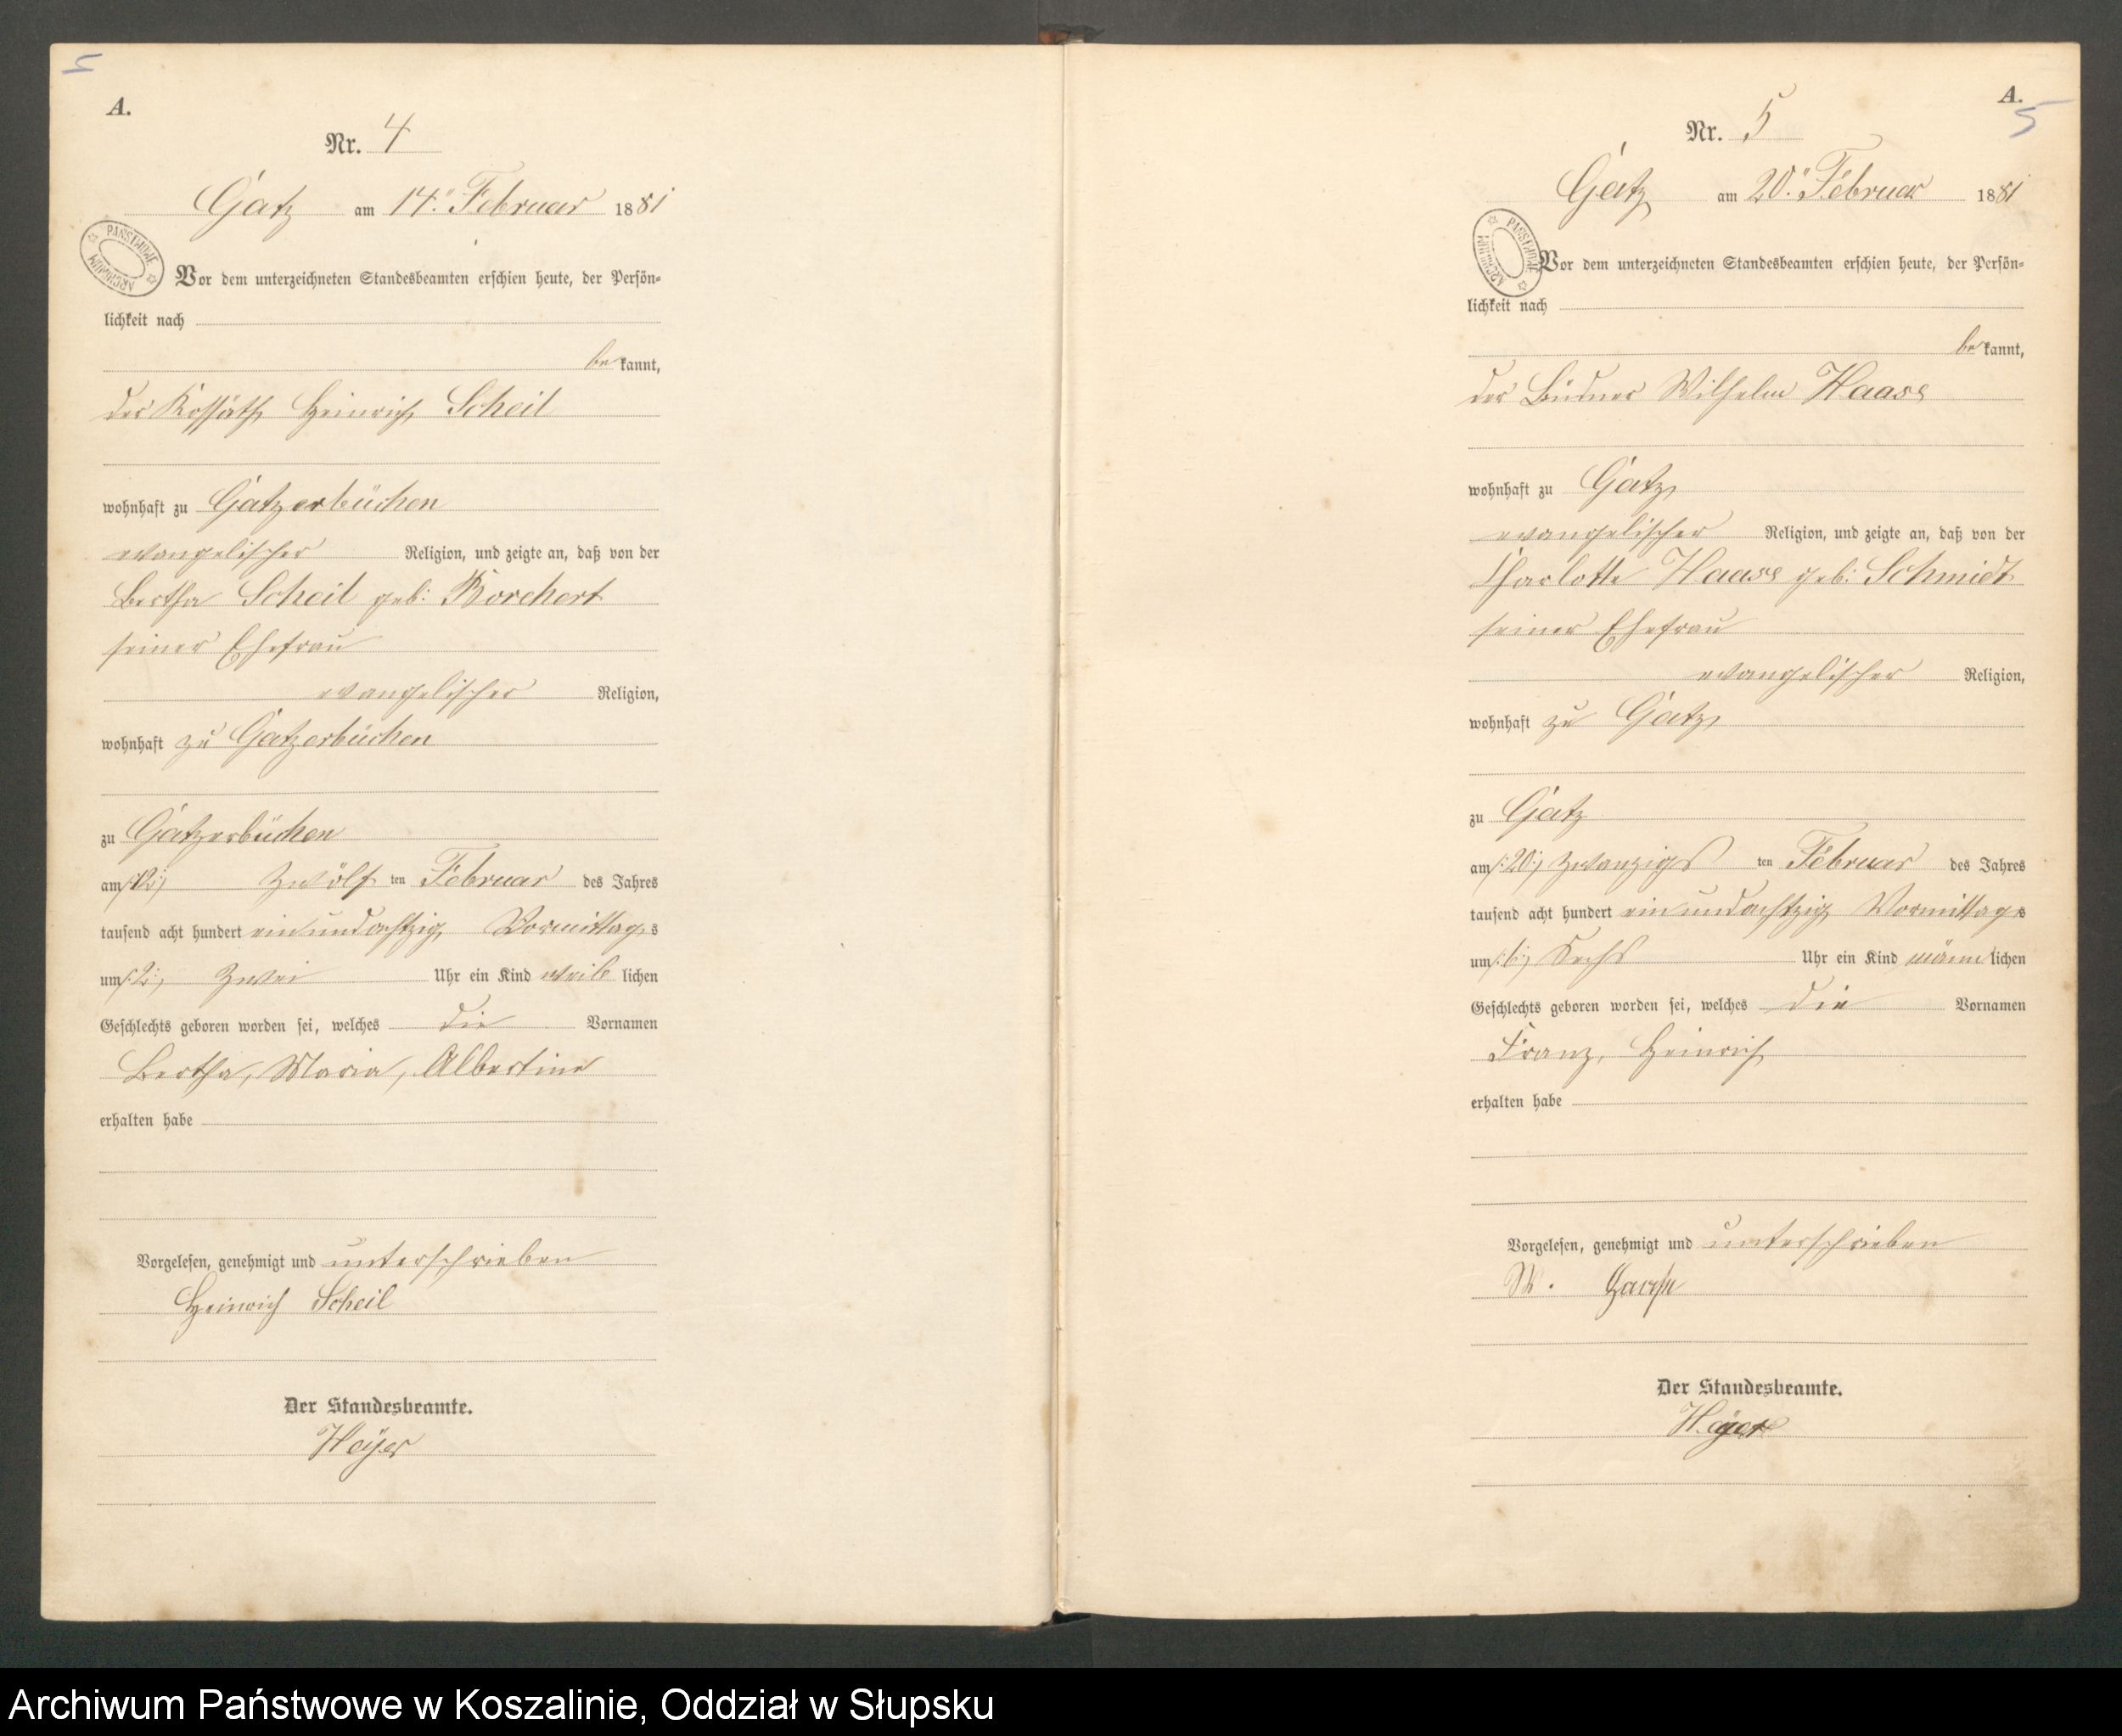 5
A.
Nr. 4
Gatz am 14. Februar 1881
PAŃSTWOWE ARCHIWUM
Vor dem unterzeichneten Standesbeamten erschien heute, der Persön-
lichkeit nach
be kannt,
der Kossäth Heinrich Scheil
wohnhaft zu Gatzerbüchen
evangelischer Religion, und zeigte an, daß von der
Bertha Scheil geb: Borchert
seiner Ehefrau
evangelischer Religion,
wohnhaft zu Gatzerbüchen
zu Gatzerbüchen
am /:12:/ zwölf ten Februar des Jahres
tausend acht hundert ein und achtzig Vormittags
um /:2:/ zwei Uhr ein Kind weib lichen
Geschlechts geboren worden sei, welches die Vornamen
Bertha, Maria, Albertine
erhalten habe
Vorgelesen, genehmigt und unterschrieben
Heinrich Scheil
Der Standesbeamte.
Heyer
A.
5
Nr. 5
Gatz am 20. Februar 1881
PAŃSTWOWE ARCHIWUM
Vor dem unterzeichneten Standesbeamten erschien heute, der Persön-
lichkeit nach
be kannt,
der Büdner Wilhelm Haase
wohnhaft zu Gatz
evangelischer Religion, und zeigte an, daß von der
Charlotte Haase geb: Schmidt
seiner Ehefrau
evangelischer Religion,
wohnhaft zu Gatz
zu Gatz
am /:20:/ zwanzigs ten Februar des Jahres
tausend acht hundert ein und achtzig Vormittags
um /:6:/ Sechs Uhr ein Kind männ lichen
Geschlechts geboren worden sei, welches die Vornamen
Franz, Heinrich
erhalten habe
Vorgelesen, genehmigt und unterschrieben
W. Haase
Der Standesbeamte.
Heyer
Archiwum Państwowe w Koszalinie, Oddział w Słupsku